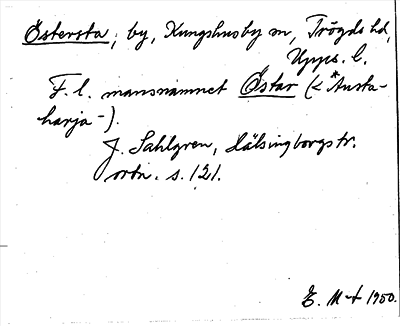 Östersta, by, Kungshusby sn, Trögds hd,
Upps. l.
F. l. mansnamnet Östar (< *Austa-
harja-).
J. Sahlgren, Hälsingborgstr.
ortn. s. 121.
E. M-t 1950.